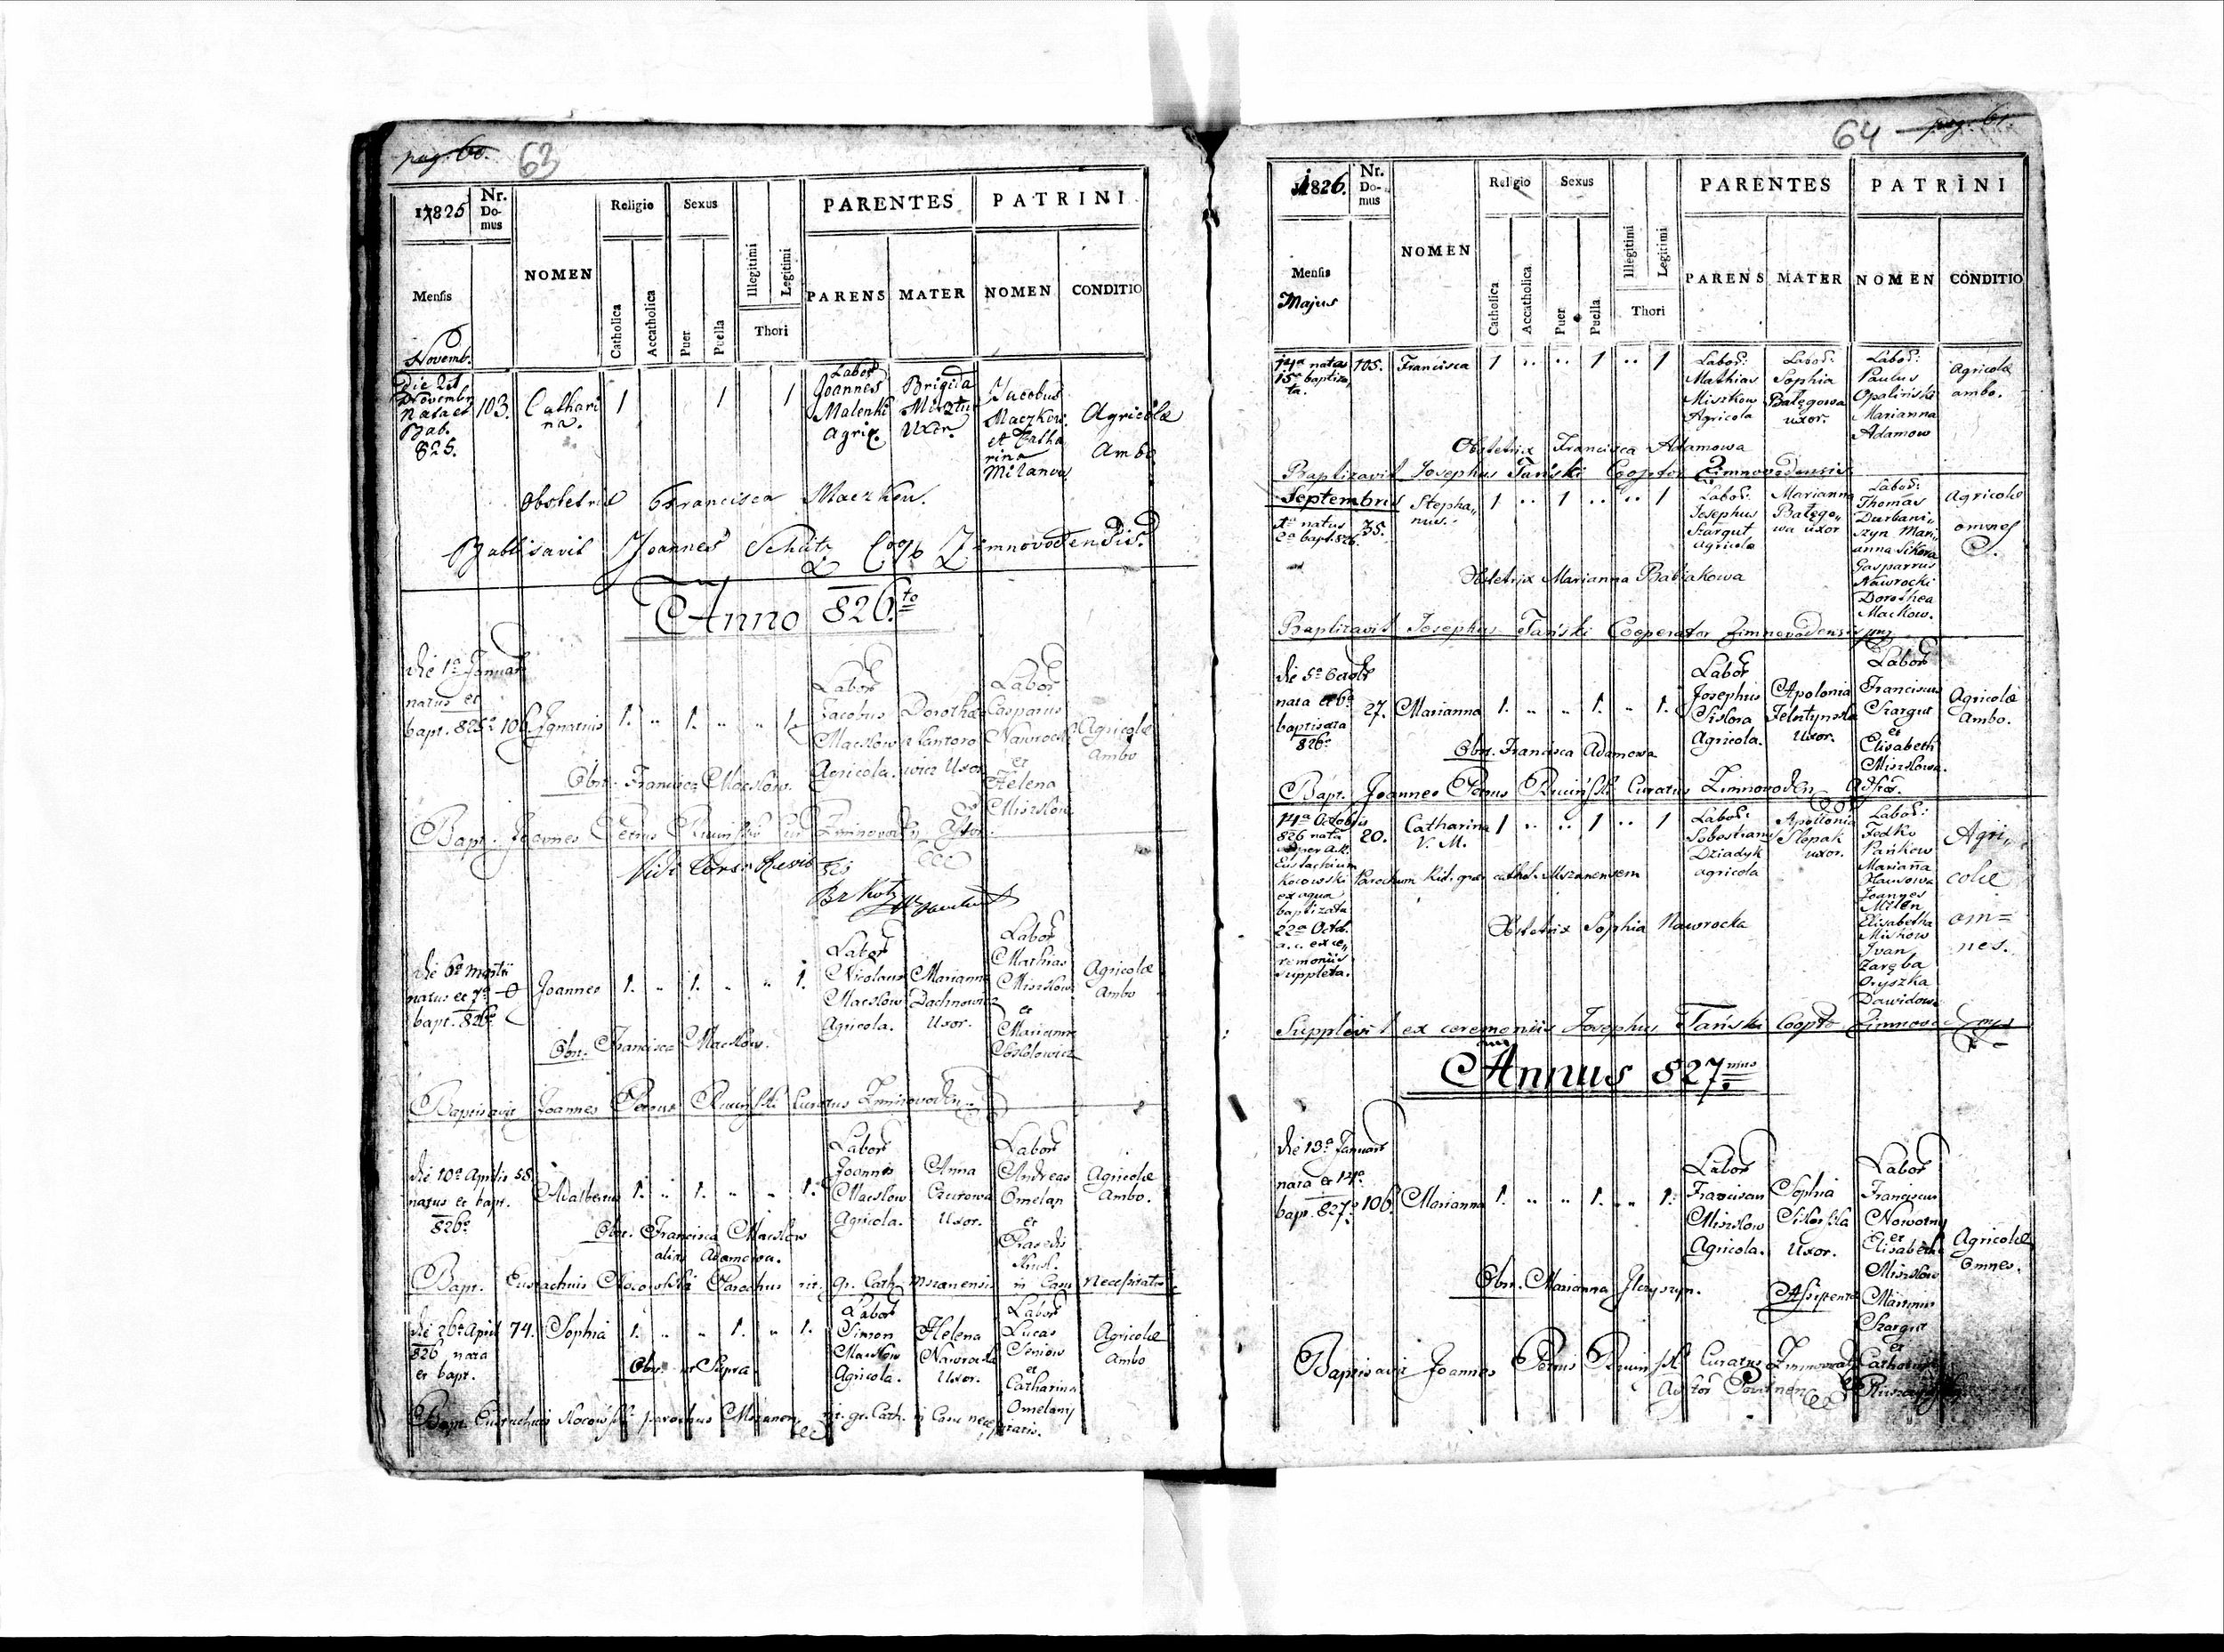 pag. 60. 63
17825
Nr. Do-mus
NOMEN
Religio
Sexus
PARENTES
PATRINI
Mensis
Catholica
Accatholica
Puer
Puella
Illegitimi
Legitimi
Thori
PARENS
MATER
NOMEN
CONDITIO
Novemb.
Die 21
Novembr
Nata et
Bab.
825.
103.
Cathari
na.
1 1 1
Labor
Joannes
Malenki
Agric.
Brigida
Uxor.
Jacobus
Maczkow.
et Catha
rina
Milanow
Agricolae
Ambo
Obstetrix Francisca Maczkow.
Babtisavit Joannes Schütz Coop Zimnovodensis.
Anno 826.to
Die 1a Januar
natus et
bapt. 826o
106.
Ignatius
1. „ 1. „ „ 1.
Labor
Jacobus
Maczkow
Agricola.
Dorothea
Kantoro
wicz Uxor
Labor
Casparus
Nawrocki
et
Helena
Miszkow
Agricolae
Ambo
Obtr. Francisca Maczkow.
Bapt. Joannes Petrus Ruciński Cur Zimnovoden Adtor.
Die 6a Martii
natus et 7a
bapt. 826o
Joannes
1. „ 1. „ „ 1.
Labor
Nicolaus
Maczkow
Agricola.
Marianna
Dachnowicz
Uxor.
Labor
Mathias
Miszkow
et
Marianna
Agricolae
Ambo
Obtr. Francisca Maczkow.
Baptisavit Joannes Petrus Ruciński Curatus Zimnovoden.
Die 10a Aprilis
natus et bapt.
826o
58.
Adalbertus
1. „ 1. „ „ 1.
Labor
Joannes
Maczkow
Agricola.
Anna
Uxor.
Labor
Andreas
Omelan
et
Praxedis
Agricolae
Ambo.
Obtr. Francisca Maczkow
alias Adamowa.
Bapt. Eustachius Kocowski Parochus rit. gr. Cath. Mszanensis in Casu necessitatis
Die 26a April
826 nata
et bapt.
74.
Sophia
1. „ „ 1. „ 1.
Labor
Simon
Maczkow
Agricola.
Helena
Nawrocka
Uxor.
Labor
Lucas
Seniow
et
Catharina
Omelany
Agricolae
Ambo
Obtr. ut Supra
Bapt. Eustachius Kocowski parochus Mszanen. rit. gr. Cath. in Casu necessitatis.
64 pag. 61.
1826.
Nr. Do-mus
NOMEN
Religio
Sexus
PARENTES
PATRINI
Mensis
Majus
Catholica
Accatholica
Puer
Puella
Illegitimi
Legitimi
Thori
PARENS
MATER
NOMEN
CONDITIO
14a nata
15a baptiza
ta.
105.
Francisca
1 .. .. 1 .. 1
Labor:
Mathias
Miszkow
Agricola
Labor:
Sophia
Bałęgowa
uxor.
Labor:
Paulus
Opaliński
Marianna
Adamow
Agricolae
ambo.
Obstetrix Francisca Adamowa
Baptizavit Josephus Tański Cooptor Zimnovodensis
Septembris
1a natus
2a bapt. 826.
35.
Stepha„
nus.
1 .. 1 .. .. 1
Labor:
Josephus
Szargut
agricola
Marianna
Bałęgo„
wa uxor
Labor:
Thomas
Durbani„
szyn Mari„
anna Sikora
Gasparrus
Nawrocki
Dorothea
Mackow.
Agricolae
omnes
Obstetrix Marianna Babiakowa
Baptizavit Josephus Tański Cooperator Zimnovodensis
Die 5a 8bris
nata et 6a
baptisata
826o
27.
Marianna
1. „ „ 1. „ 1.
Labor
Josephus
Sikora
Agricola.
Apolonia
Uxor.
Labor
Franciscus
Szargut
et
Elisabeth
Miszkowa.
Agricolae
Ambo.
Obtr. Francisca Adamowa
Bapt. Joannes Petrus Ruciński Curatus Zimnovoden Adtor.
14a Octobris
826 nata
Eustachium
Kocowski Parochum Rit. grae. cathol. Mszanensem
ex aqua
baptizata
22a Octob.
a. c. ex ce„
remoniis
suppleta.
20.
Catharina
V. M.
1 .. .. 1 .. 1
Labor:
Sebastianus
Dziadyk
agricola
Apollonia
Slepak
uxor.
Labor:
Fedko
Pańkow
Marianna
Joannes
Milen
Elisabetha
Miskow
Ivan
Zaręba
Oryszka
Dawidow.
Agri„
colae
om=
nes.
Obstetrix Sophia Nawrocka
Supplevit ex ceremoniis Josephus Tański Coopto Zimnovo
Annus 827mus
Die 13a Januar
nata et 14a
bapt. 827o
106.
Marianna
1. „ „ 1. „ 1.
Labor
Francisan
Miszkow
Agricola.
Sophia
Uxor.
Labor
Franciscus
Nowotny
et
Elisabetha
Miszkow
Agricolae
Omnes.
Assistentes
Martinus
Szargut
et
Catharina
Obtr. Marianna
Baptisavit Joannes Petrus Ruciński Curatus